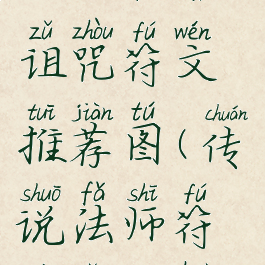 zǔ zhòu fú wén
诅咒符文
tuī jiàn tú chuán
推荐图(传
shuō fǎ shī fú
说法师符